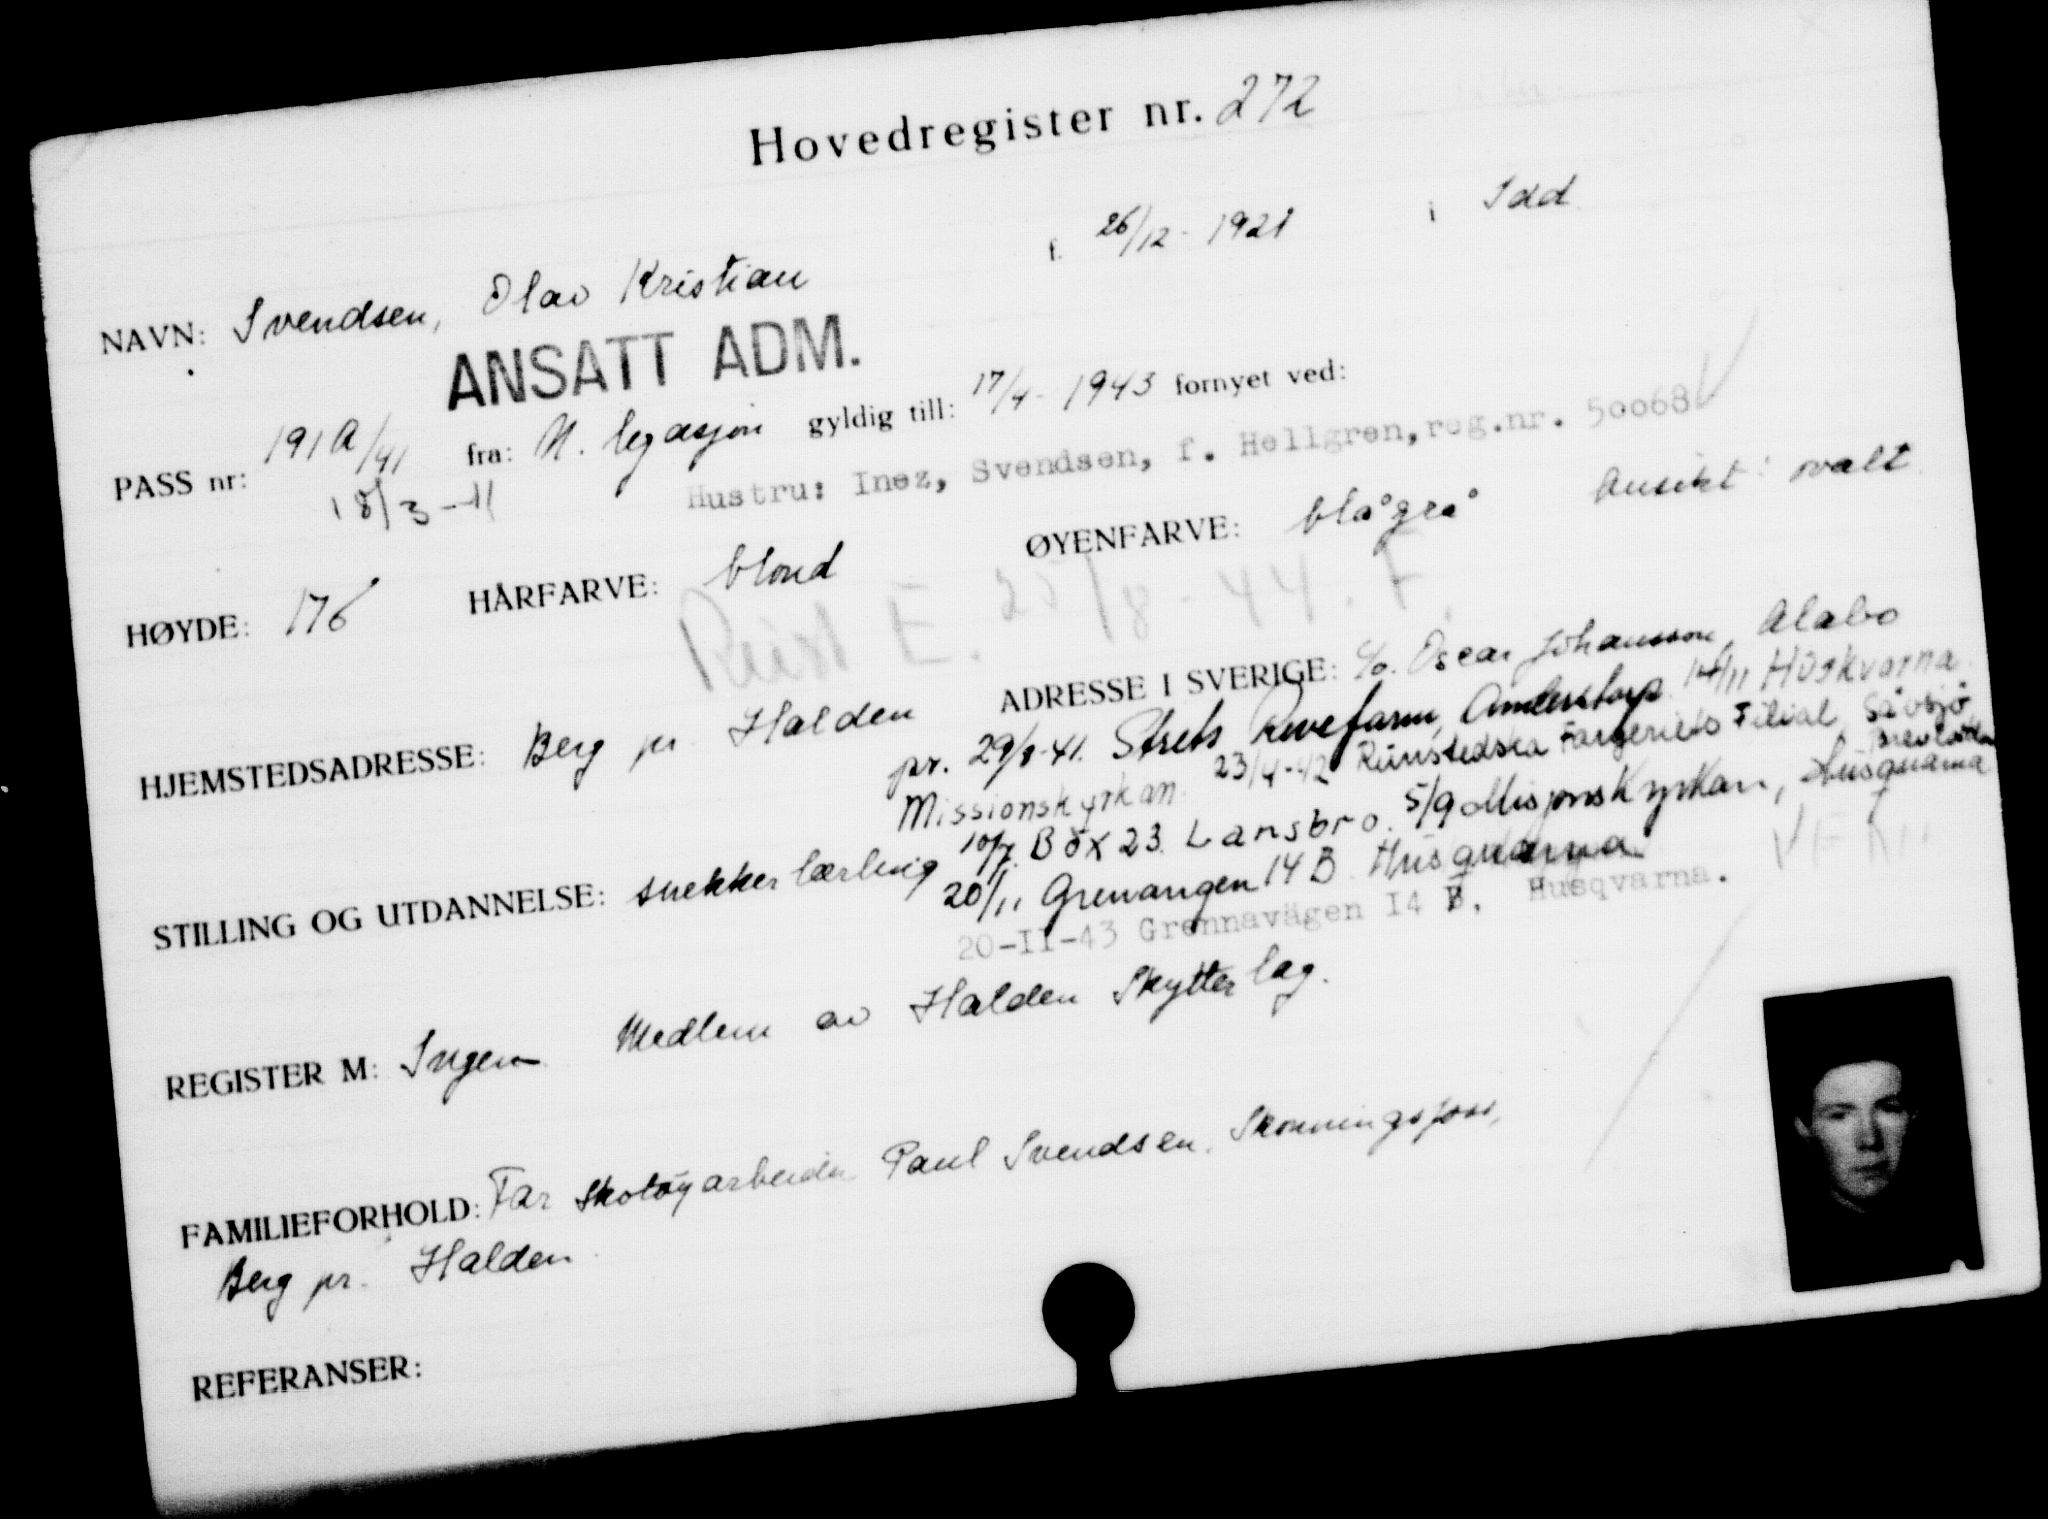 Hovedregister nr. 272
NAVN: Svendsen, Olav Kristian f. 26/12 - 1921 i Idd
ANSATT ADM.
PASS nr: 191A/41 fra: N. legasjon gyldig till: 17/4 - 1943 fornyet ved:
18/3-41 Hustru: Inez, Svendsen, f. Hellgren, reg.nr. 50068
HØYDE: 176 HÅRFARVE: blond ØYENFARVE: blågrå Ansikt: ovalt
Reist E. 25/8-44. F.
HJEMSTEDSADRESSE: Berg pr. Halden ADRESSE I SVERIGE: c/o. Oscar Johansson, Alabo
pr. 29/8-41. Strets Revefarm, Anderstorp. 14/11 Huskvarna
Missionskyrkan. 23/4-42 Rünstedska Färgeriets Filial, Såvsjö
STILLING OG UTDANNELSE: snekkerlærling 10/7. Box 23. Lansbro. 5/9 Misjonskyrkan, Husqvarna
20/11 Grenvangen 14 B Husqvarna
20-II-43 Grennavägen I4 B, Husqvarna.
REGISTER M: Ingen Medlem av Halden Skytterlag.
FAMILIEFORHOLD: Far skotøyarbeider Paul Svendsen, Skonningsfoss,
Berg pr. Halden
REFERANSER: